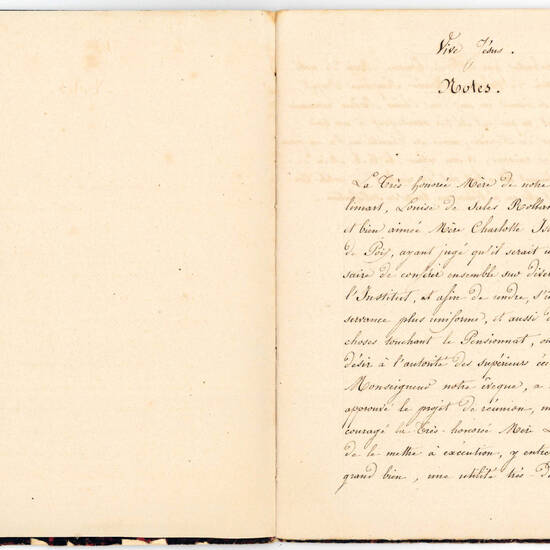 Vive Jésus.
Notes.
La Très honorée Mère de notre
limart, Louise de Sales Rollan
et bien aimée Mère Charlotte Is
de Poix, ayant jugé qu'il serait u
saire de conférer ensemble sur diver
l'Institut, et afin de rendre, s'
servance plus uniforme, et aussi
choses touchant le Pensionnat, on
désir à l'autorité des supérieurs écc
Monseigneur notre évêque, a
approuvé le projet de réunion, m
couragé la Très-honorée Mère L
de le mettre à exécution, y entre
grand bien, une utilité très-D